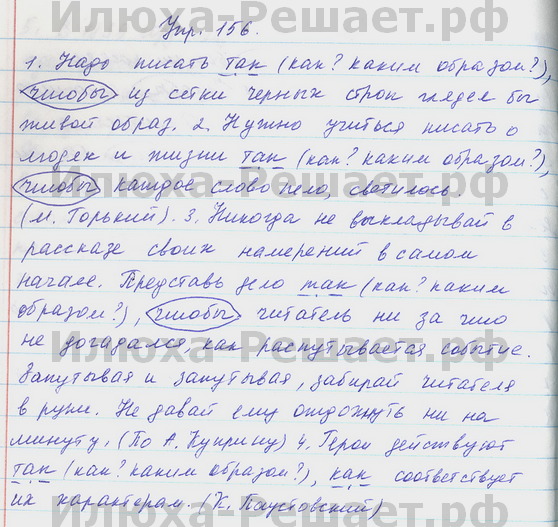 Илюха-Решает.рф
Упр. 156.
1. Надо писать так (как? каким образом?),
чтобы из сетки черных строк глядел бы
живой образ. 2. Нужно учиться писать о
людях и жизни так (как? каким образом?),
чтобы каждое слово пело, светилось.
(М. Горький). 3. Никогда не выкладывай в
рассказе своих намерений в самом
начале. Представь дело так (как? каким
образом?), чтобы читатель ни за что
не догадался, как распутывается событие.
Запутывая и запутывая, забирай читателя
в руки. Не давай ему отдохнуть ни на
минуту. (По А. Куприну) 4. Герои действуют
так (как? каким образом?), как соответствует
их характерам. (К. Паустовский)